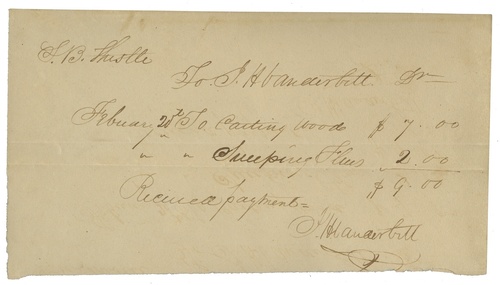 T. B. Thistle
To J. H Vanderbilt Dr
Febuary 20th To Carting Wood $ 7.00
" " Sweeping Flues 2.00
$ 9.00
Recieved payment=
J H Vanderbilt